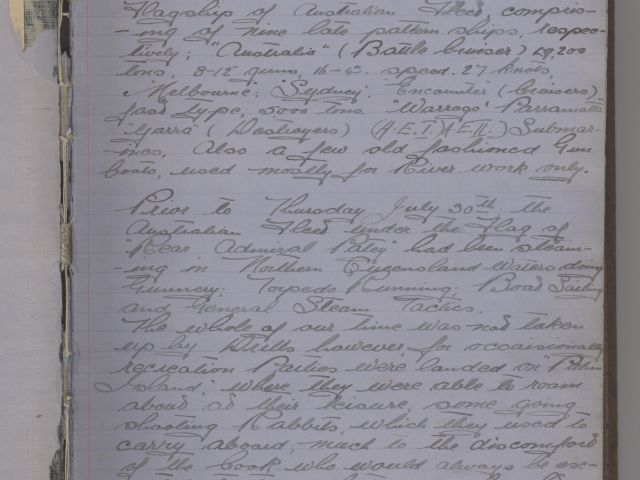 Flagship of Australian Fleet compris-
-ing of nine late pattern ships, respec-
tively; "Australia" (Battle Cruiser) 19,200
tons, 8-12" guns, 16-4". speed. 27 knots,
Melbourne; Sydney; Encounter (Cruisers)
fast type, 5,000 tons. "Warrego" Parramatta"
"Yarra" (Destroyers) (A.E.I. A.E.II.) Submar-
-ines. Also a few old fashioned Gun
boats, used mostly for River work only.
Prior to Thursday July 30th the
Australian Fleet under the Flag of
"Rear Admiral Patey" had been steam-
-ing in Northern Queensland Waters doing
Gunnery; Torpedo Running; Boat Sailing
and General Steam Tactics.
The whole of our time was not taken
up by Drills however, for occaisionally
recreation Parties were landed on "Palm
Island," where they were able to roam
about at their leisure, some going
shooting Rabbits, which they used to
carry aboard; much to the discomfort
of the Cook who would always be